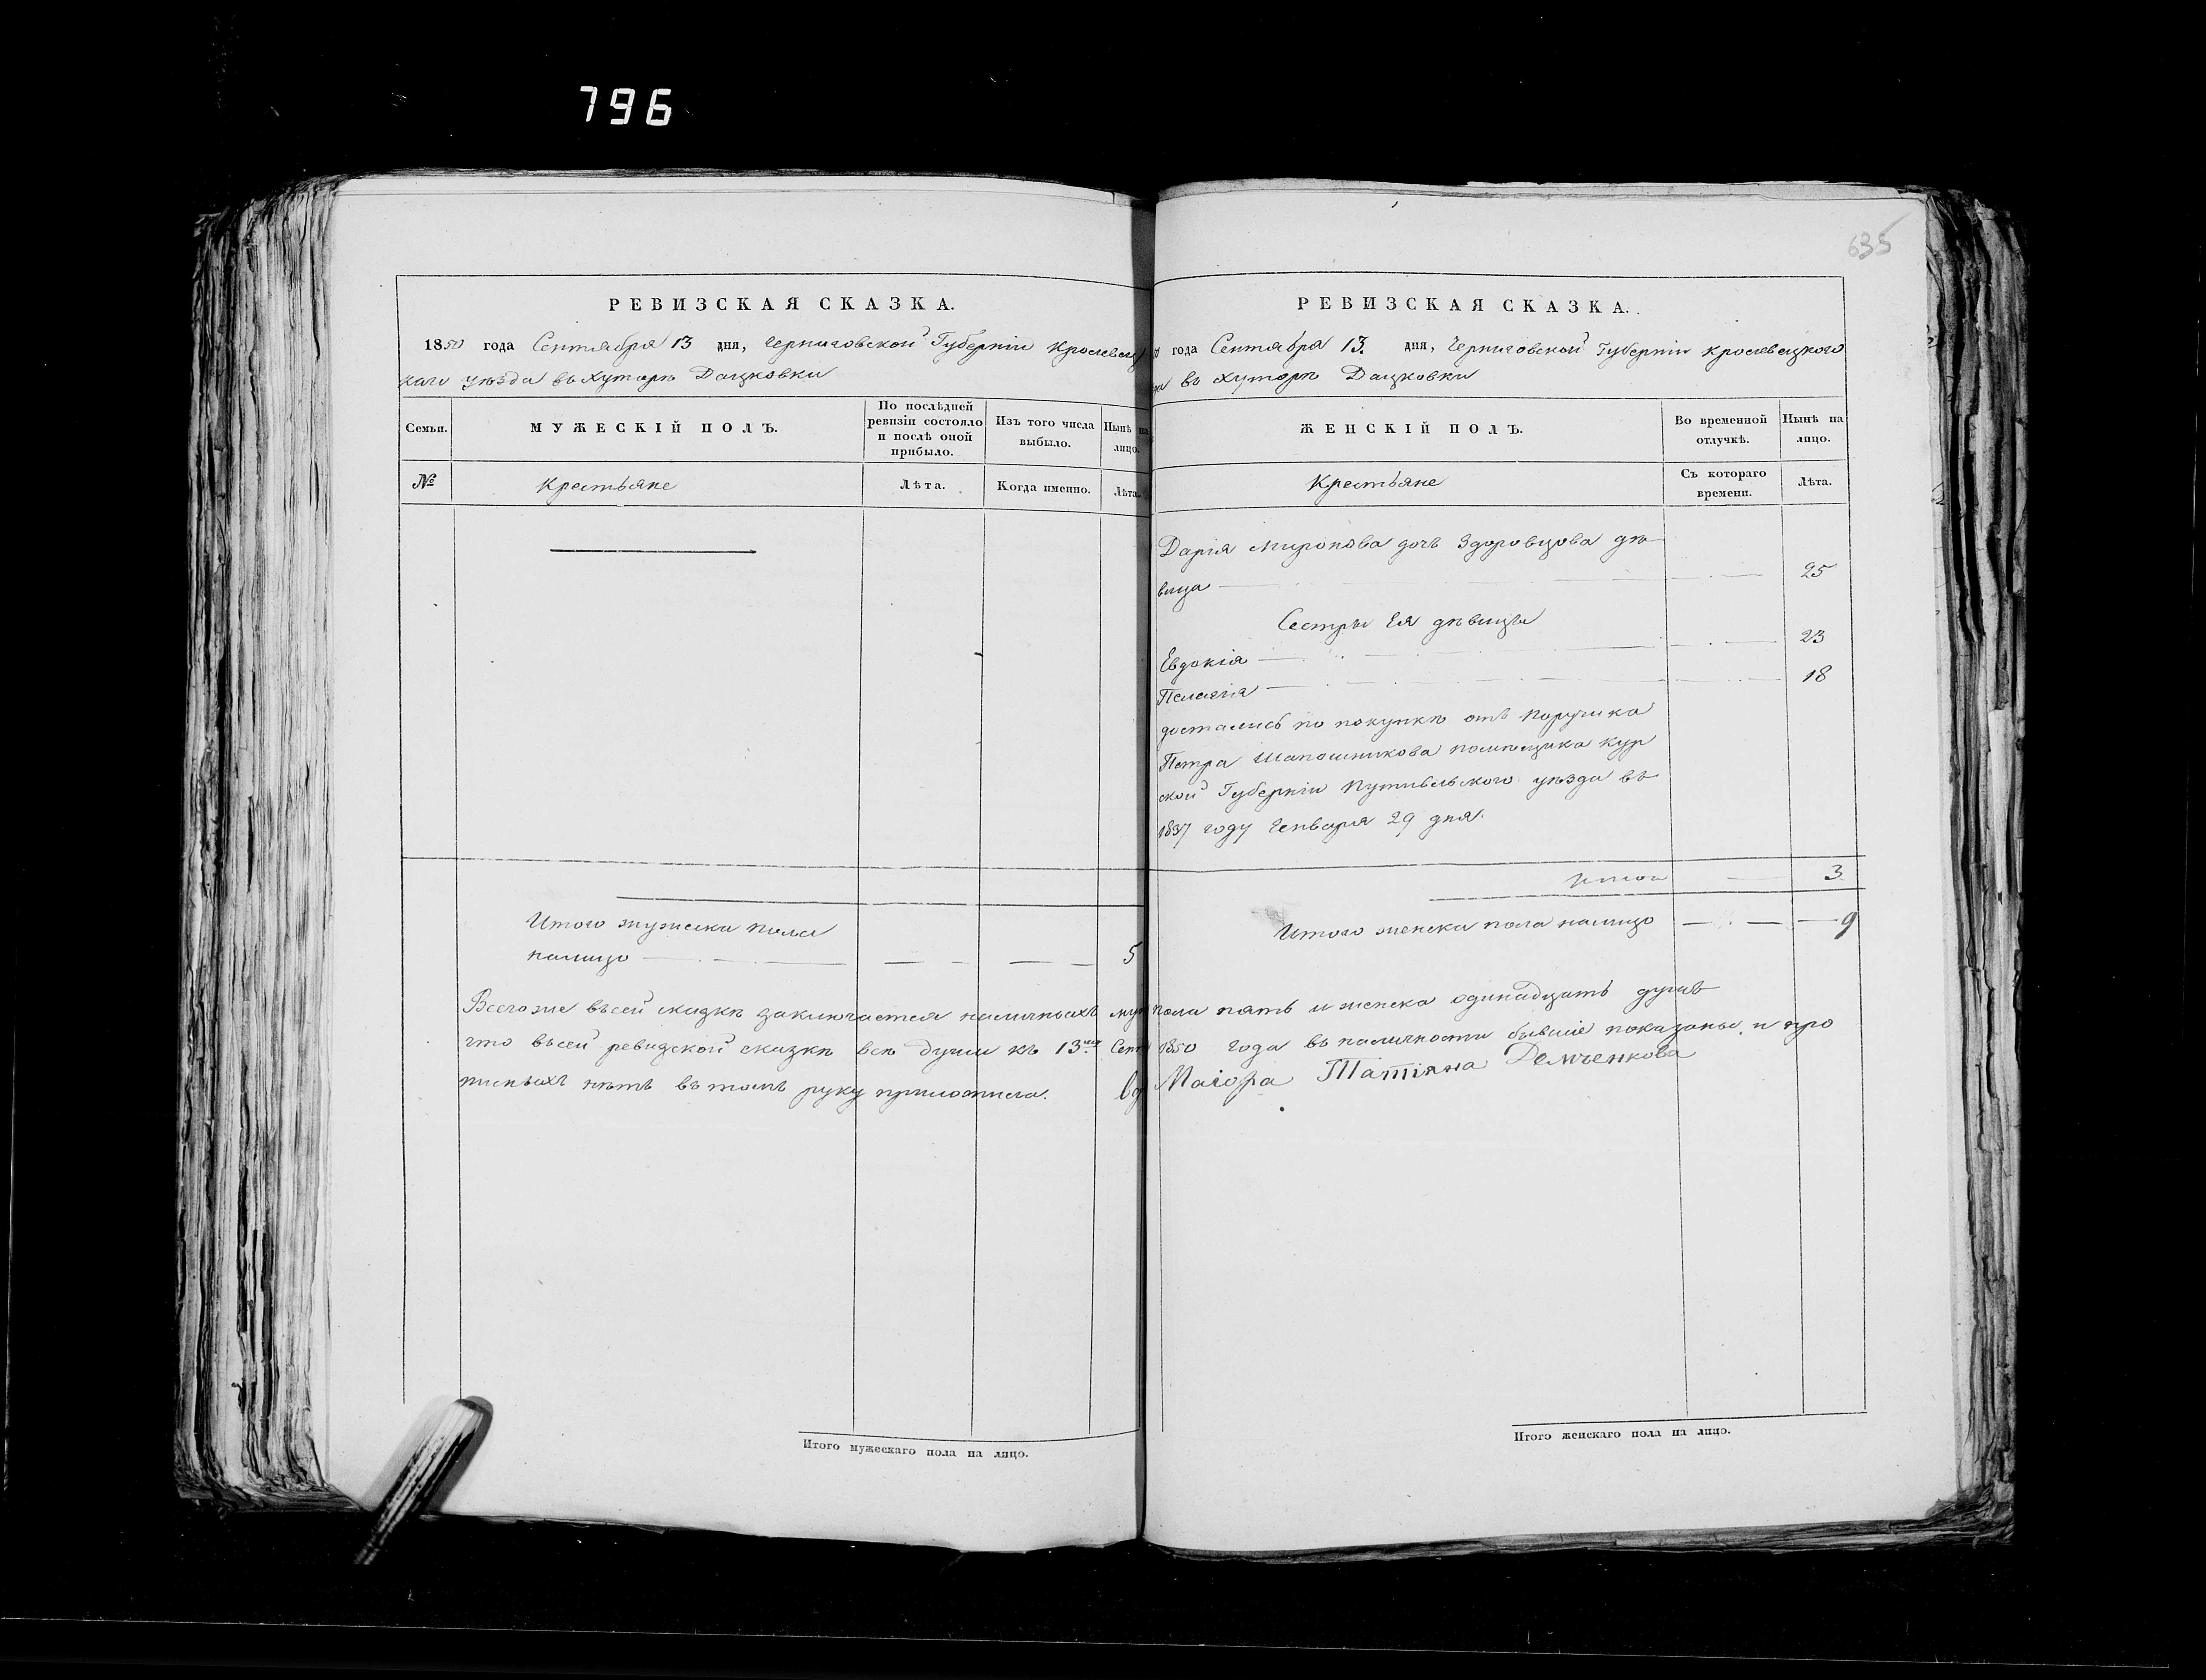 796
635
РЕВИЗСКАЯ СКАЗКА.
1850 года Сентября 13 дня, Черниговской Губерніи Кролевец
каго уѣзда въ хуторѣ Дацковки
Семьи.
МУЖЕСКІЙ ПОЛЪ.
По послѣдней
ревизіи состояло
и послѣ оной
прибыло.
Изъ того числа
выбыло.
Нынѣ на
лицо.
№
Крестьяне
Лѣта.
Когда именно.
Лѣта.
Итого мужеска пола
налицо 5
Всего же въ сей сказкѣ заключается наличныхъ муж
что въ сей ревизской сказкѣ всѣ души къ 13 Сент
писныхъ нѣтъ въ томъ руку приложила. вд
Итого мужескаго пола на лицо.
РЕВИЗСКАЯ СКАЗКА.
года Сентября 13. дня, Черниговской Губерніи Кролевецкого
въ хуторѣ Дацковки
ЖЕНСКІЙ ПОЛЪ.
Во временной
отлучкѣ.
Нынѣ на
лицо.
Крестьяне
Съ котораго
времени.
Лѣта.
Дарія Миронова дочь Здоровцова дѣ
вица 25
Сестры Ея дѣвицы
Евдокія 23
Пелагія 18
достались по покупкѣ отъ Поручика
Петра Шапошникова помѣщика Кур
ской Губерніи Путивльского уѣзда въ
1837 году Генваря 29 дня.
Итого 3
Итого женска пола налицо 9
пола пять и женска одинадцать душъ
1850 года въ наличности бывшіе показаны, и про
Маіора Татіяна Демченкова
Итого женскаго пола на лицо.